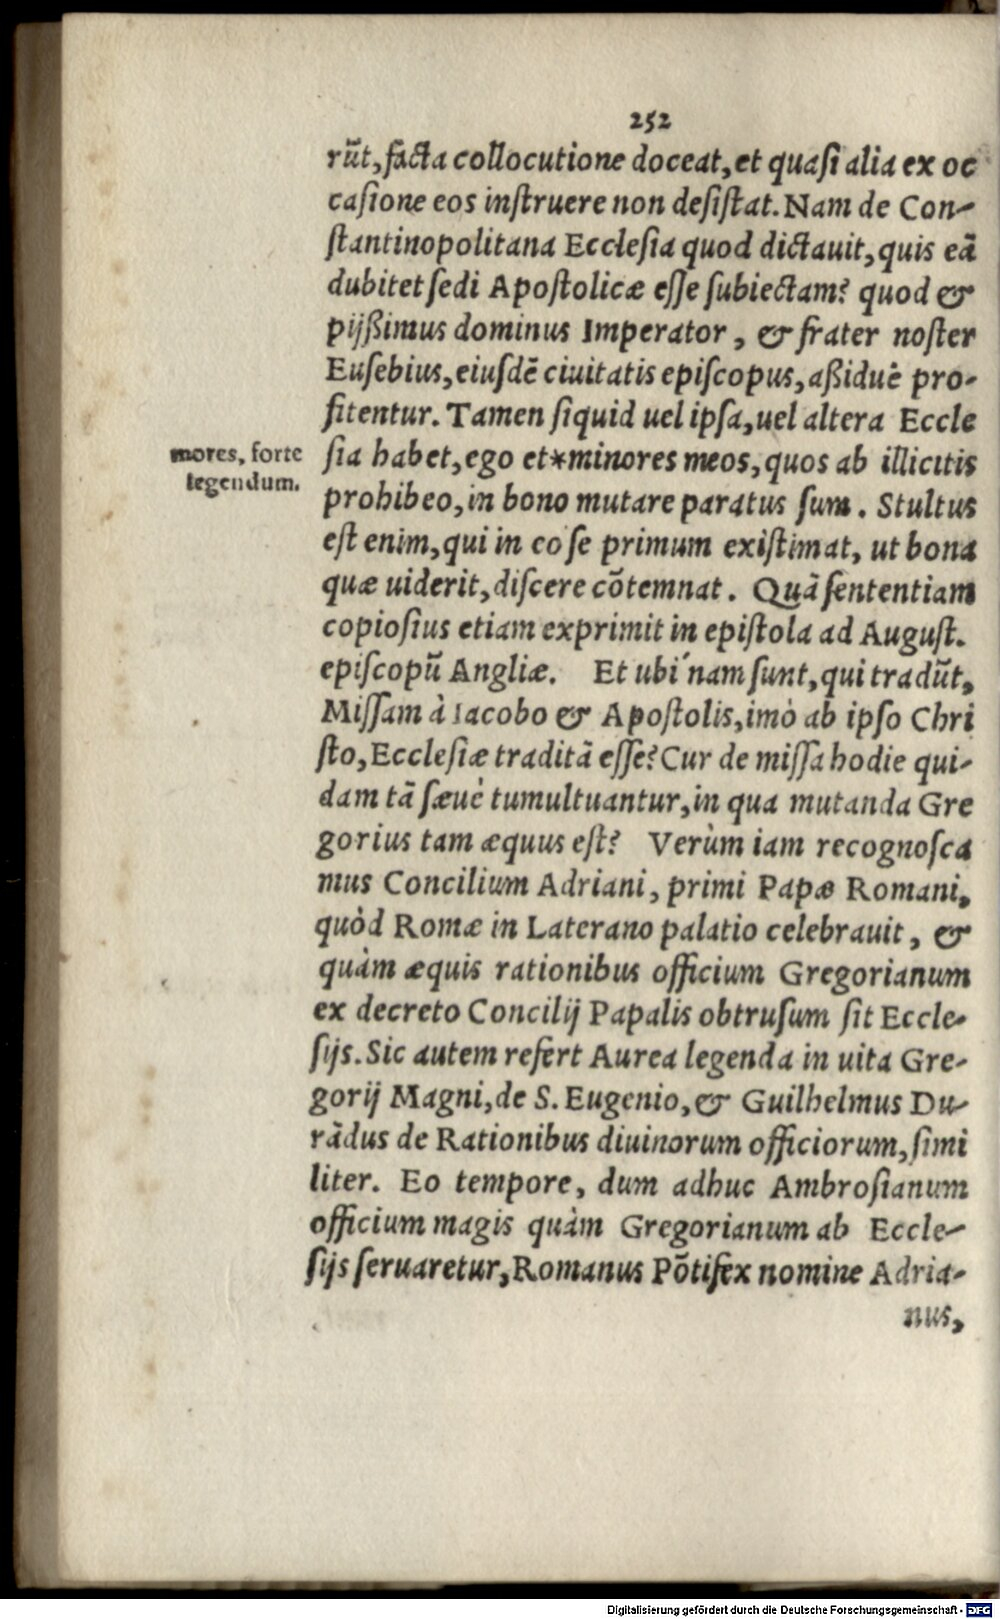 252
rūt, facta collocutione doceat, et quaſi alia ex oc
caſione eos inſtruere non deſiſtat. Nam de Con-
ſtantinopolitana Eccleſia quod dictauit, quis eā
dubitet ſedi Apoſtolicæ eſſe ſubiectam? quod &
pijßimus dominus Imperator, & frater noſter
Euſebius, eiuſdē ciuitatis epiſcopus, aßiduè pro-
fitentur. Tamen ſiquid uel ipſa, uel altera Eccle
mores, forte
legendum.
ſia habet, ego et*minores meos, quos ab illicitis
prohibeo, in bono mutare paratus ſum. Stultus
eſt enim, qui in eo ſe primum exiſtimat, ut bona
quæ uiderit, diſcere cōtemnat. Quā ſententiam
copioſius etiam exprimit in epiſtola ad Auguſt.
epiſcopū Angliæ. Et ubi´nam ſunt, qui tradūt,
Miſſam à Iacobo & Apoſtolis, imò ab ipſo Chri
ſto, Eccleſiæ traditā eſſe? Cur de miſſa hodie qui-
dam tā ſæuè tumultuantur, in qua mutanda Gre
gorius tam æquus eſt? Verùm iam recognoſca
mus Concilium Adriani, primi Papæ Romani,
quòd Romæ in Laterano palatio celebrauit, &
quàm æquis rationibus officium Gregorianum
ex decreto Concilij Papalis obtruſum ſit Eccle-
ſijs. Sic autem refert Aurea legenda in uita Gre-
gorij Magni, de S. Eugenio, & Guilhelmus Du-
rādus de Rationibus diuinorum officiorum, ſimi
liter. Eo tempore, dum adhuc Ambroſianum
officium magis quàm Gregorianum ab Eccle-
ſijs ſeruaretur, Romanus Pōtifex nomine Adria-
nus,
Digitalisierung gefördert durch die Deutsche Forschungsgemeinschaft - DFG